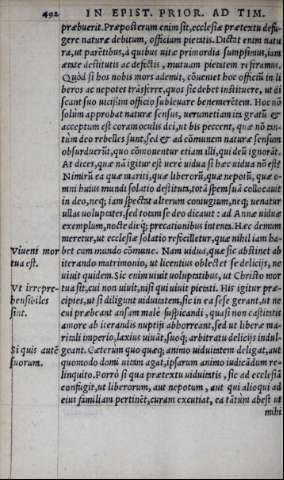 492 IN EPIST. PRIOR. AD TIM.
præbuerit. Præposterum enim sit, ecclesiæ prætextu defu-
gere naturæ debitum, officium pietatis. Dictat enim natu
ra, ut parētibus, à quibus uitæ primordia sumpsimus, iam
ætate destitutis ac defectis, mutuam pietatem refiramus.
Quòd si hos nobis mors ademit, cōuenit hoc officiū in li
beros ac nepotes trāsferre, quos sic debet instituere, ut di
scant suo uicissim officio subleuare benemerētem. Hoc nō
solùm approbat naturæ sensus, uerumetiam ita gratū &
acceptum est coram oculis dei, ut bis peccent, quæ nō tan-
tùm deo rebelles sunt, sed & ad cōmunem naturæ sensum
obsurduerūt, quo cōmouentur etiam illi, qui deū ignorāt.
At dices, quæ nā igitur est uerè uidua si hæc uidua nō est?
Nimirū ea quæ mariti, quæ liberorū, quæ nepotū, quæ o-
mni huius mundi solatio destituta, totā spem suā collocauit
in deo, neq; iam spectat alterum coniugium, neq; uenatur
ullas uoluptates, sed totam se deo dicauit: ad Annæ uiduæ
exemplum, nocte dieq́; precationibus intenta. Hæc demum
meretur, ut ecclesiæ solatio reficilletur, quæ nihil iam ha-
Viuens mor bet cum mundo cōmune. Nam uidua, quæ sic abstinet ab
tua est. iterando matrimonio, ut licentius oblectet se deliciis, ne
uiuit quidem. Sic enim uiuit uoluptatibus, ut Christo mor
Vt irrepre- tua sit, cui non uiuit, nisi qui uiuit pietati. His igitur præ-
hensibiles cipies, ut si diligunt uiduitatem, sic in ea sese gerant, ut ne
sint. cui præbeant ansam malè suspicandi, quasi non castitatis
amore ab iterandis nuptijs abhorreant, sed ut liberæ ma-
riti imperio, laxius uiuāt, suoq́; arbitratu deliciis indul-
Si quis autē geant. Cæterum quo quæq; animo uiduitatem deligat, aut
suorum. quomodo domi uitam agat, ipsarum animo iudicādum re-
linquito. Porrò si qua prætextu uiduitatis, sic ad ecclesiā
confugit, ut liberorum, aut nepotum, aut qui alioqui ad
eius familiam pertinēt, curam excutiat, ea tātùm abest ut
mihi